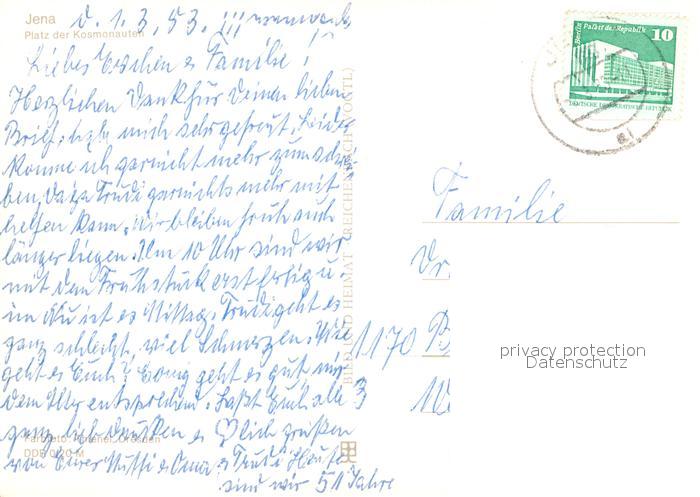 Jena
Platz der Kosmonauten
d. 1. 3. 53. !!!
Liebes Evchen & Familie !
Herzlichen Dank für Deinen lieben
Brief, hab mich sehr gefreut, leider
komme ich garnicht mehr zum schrei
ben, da ja Trudi garnichts mehr mit
helfen kann. Wir bleiben früh auch
länger liegen. Um 10 Uhr sind wir
mit dem Frühstück erst fertig u.
im Nu ist es Mittag. Trudi geht es
ganz schlecht, viel Schmerzen. Wie
geht es Euch? geht es gut, nur
dem Alter entsprechend. Laßt Euch alle
ganz lieb drücken & ♡lich grüßen
von Eurer Mutti & Oma & Trudi Heute
sind wir 51 Jahre
DDR
BILD UND HEIMAT REICHENBACH (VOGTL)
Berlin Palast der Republik
10
DEUTSCHE DEMOKRATISCHE REPUBLIK
Familie
Dr.
1170 B
3
privacy protection
Datenschutz